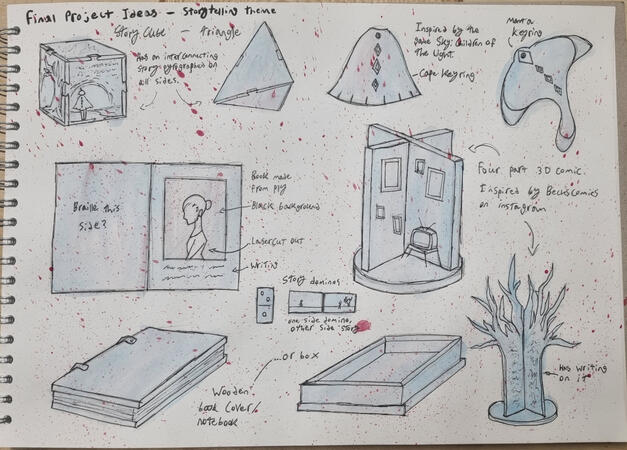 Final Project Ideas - Storytelling theme
Story Cube - Triangle
Has an interconnecting
story pyrographed on
all sides.
Inspired by the
game Sky: Children of
the Light.
Cape Keyring
Manta
Keyring
Four part 3D comic.
Inspired by Bechscomics
on instagram
Braille this
side?
Book made
from ply
Black background
Lasercut out
Writing
Story dominos
one side domino,
other side story
...or box
Wooden
book cover/
notebook
Has writing
on it